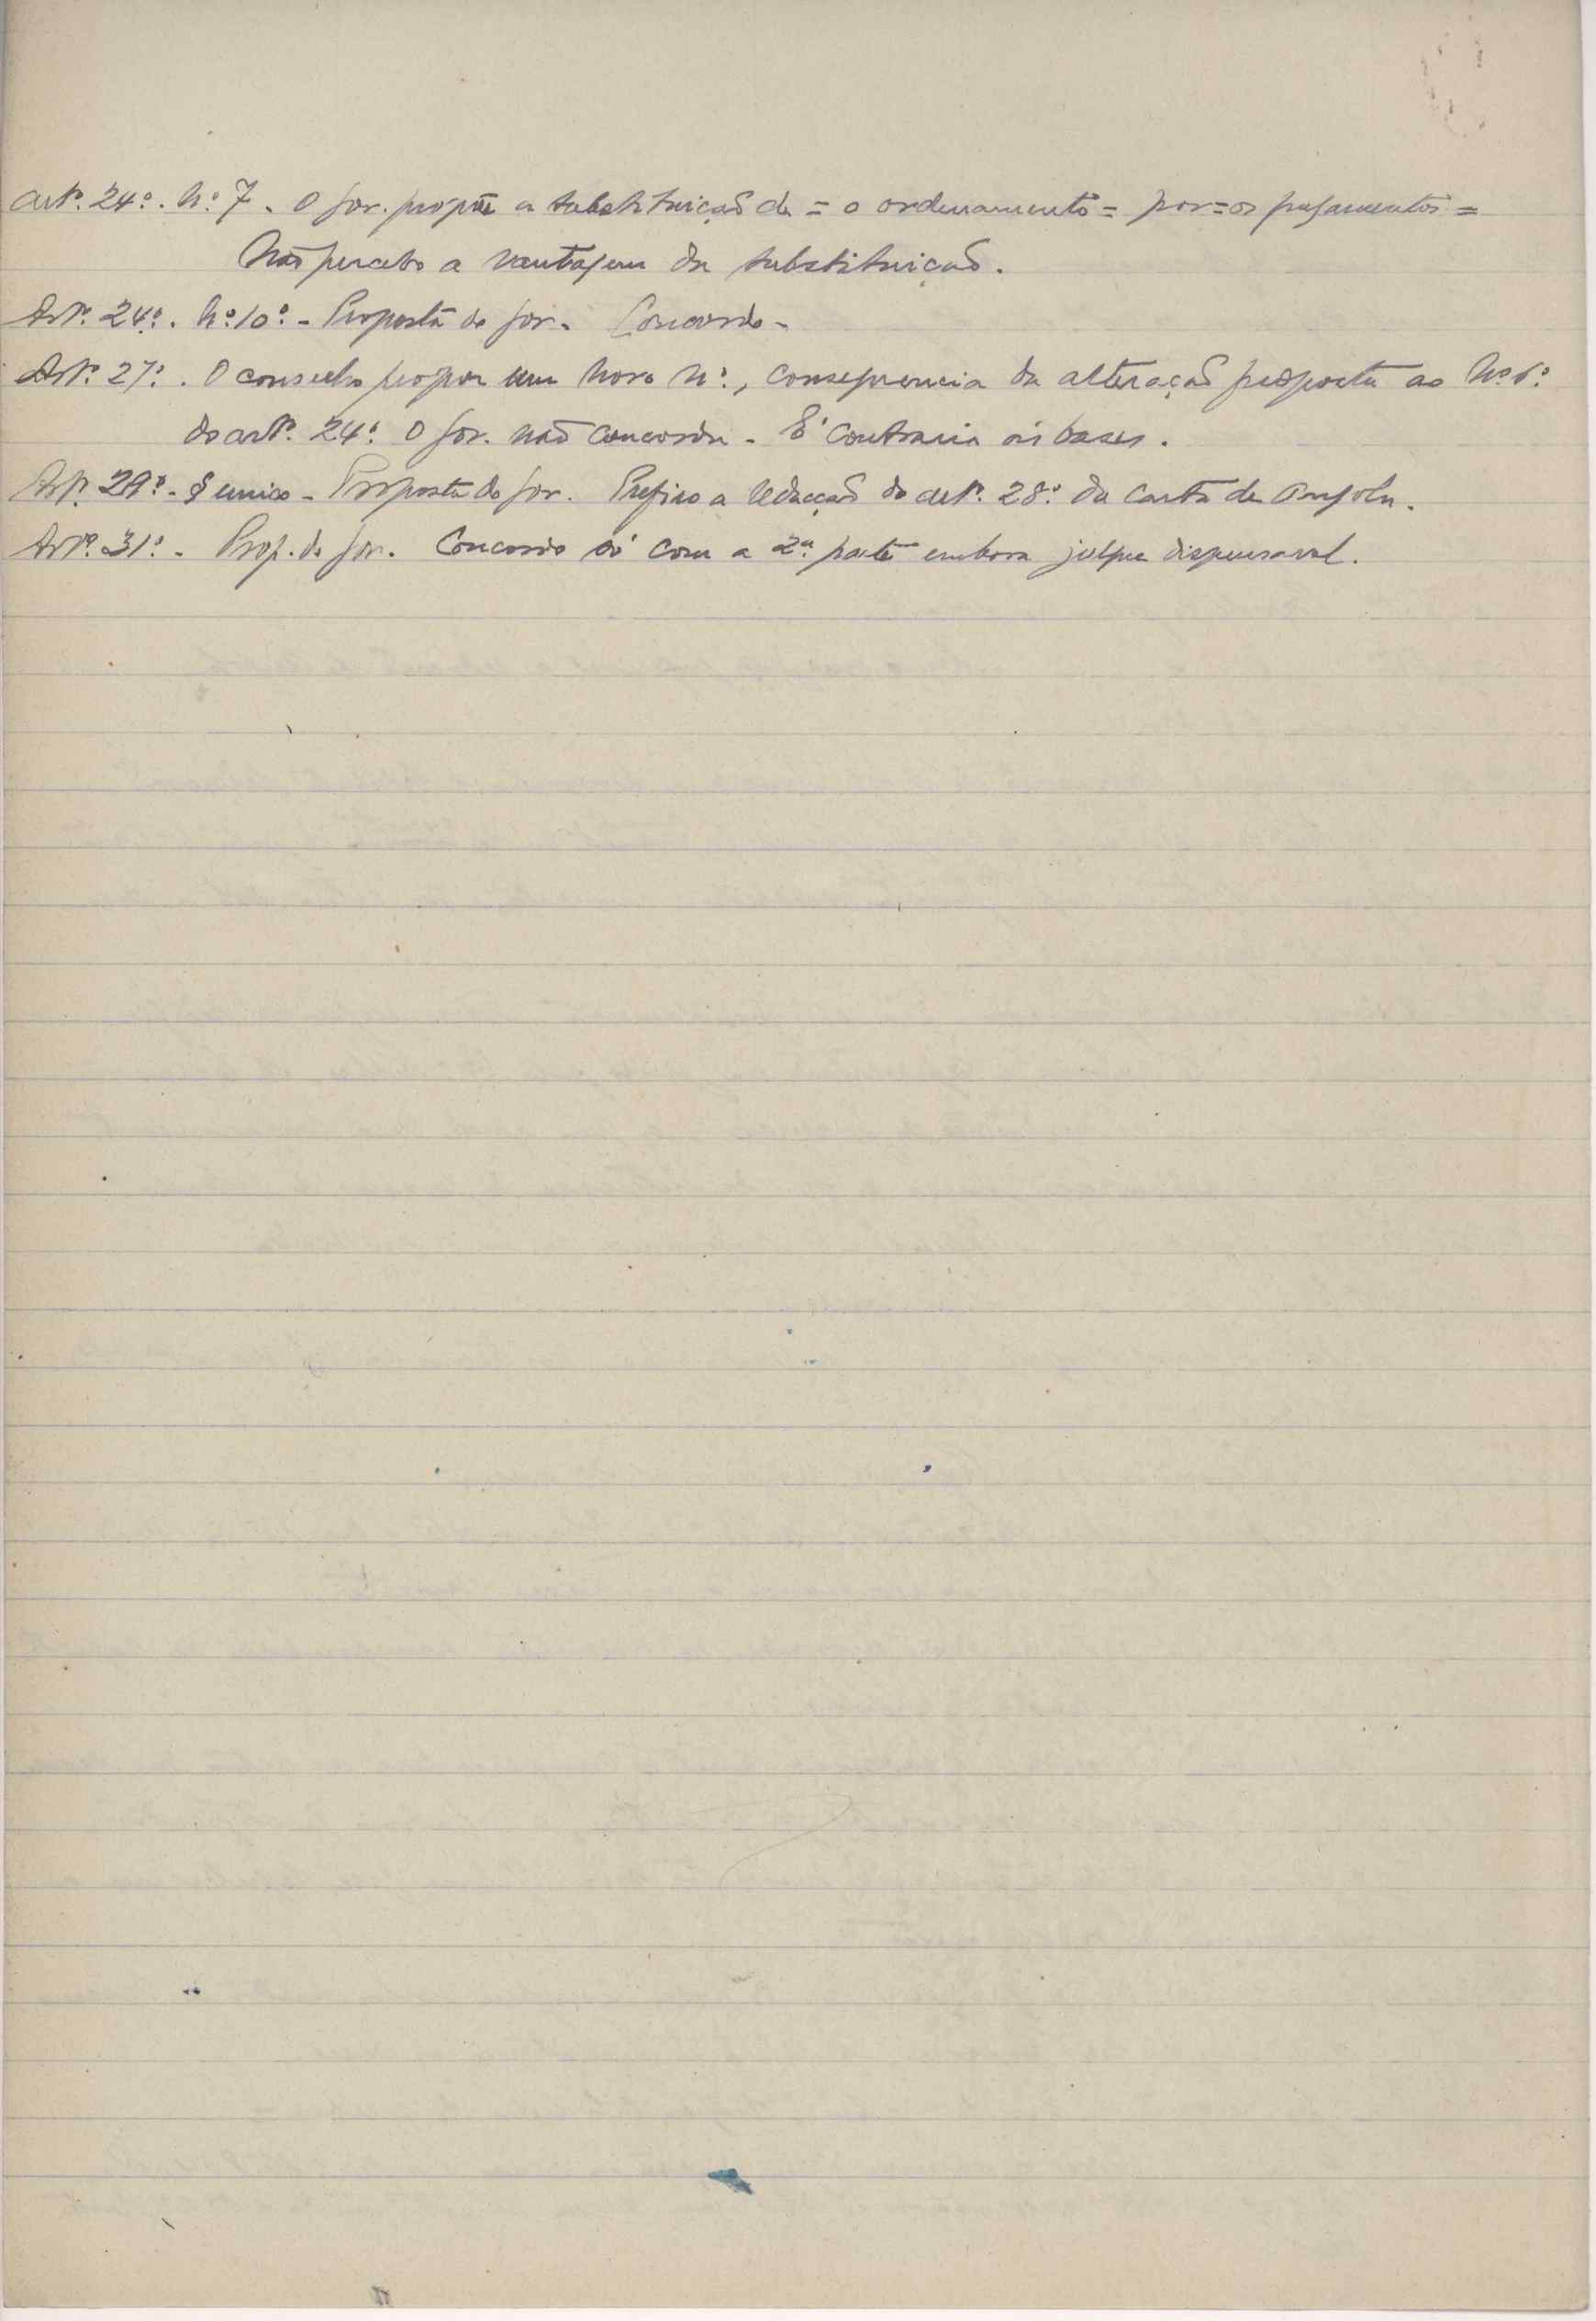 Artº. 24º. nº 7. O gov. propõe a substituição de = o ordenamento = por = os pagamentos =
Não percebo a vantagem da substituição.
Artº. 24º. nº 10º - Proposta do gov. Concordo -
Artº. 27º. O conselho propoz um novo nº, consequencia da alteração proposta ao nº 6º
do artº. 24º. O gov. não concorda - E' contrario ás bases.
Artº. 29º - § unico - Proposta do gov. Prefiro a redacção do artº. 28º da Carta de Angola.
Artº. 31º - Prop. do gov. Concordo só com a 2ª parte embora julgue dispensavel.